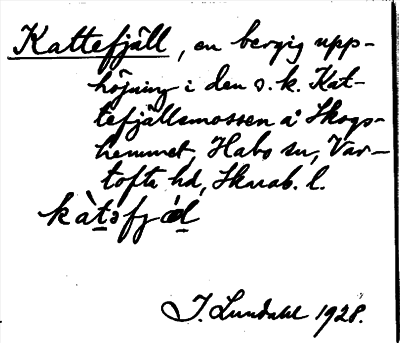 Kattefjäll, en bergig upp-
höjning i den s. k. Kat-
tefjällsmossen å Skogs-
hemmet, Habo sn, Var-
tofta hd, Skarab. l.
kàtəfjäl
J. Lundahl 1928.